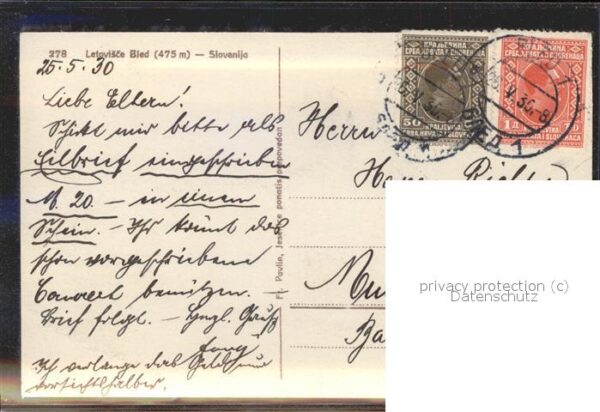 278 Letovišče Bled (475 m) — Slovenija
25.5.30
Liebe Eltern!
Schickt mir bitte als
Eilbrief eingeschrieben
M. 20 — in einem
Schein. — Ihr könnt das
schon vorgeschriebene
Couvert benützen. —
Brief folgt. — Herzl. Gruß
Ich verlange das Geld nur
vorsichtshalber.
Fr. Pavlin, Jesenice ponatis prepovedan
Herrn
Hans
Mün
Ba
КРАЉЕВИНА
СРБА ХРВАТА И СЛОВЕНАЦА
50
KRALJEVINA
КРАЉЕВИНА
СРБА ХРВАТА И СЛОВЕНАЦА
1
KRALJEVINA
BLED 1
privacy protection (c)
Datenschutz